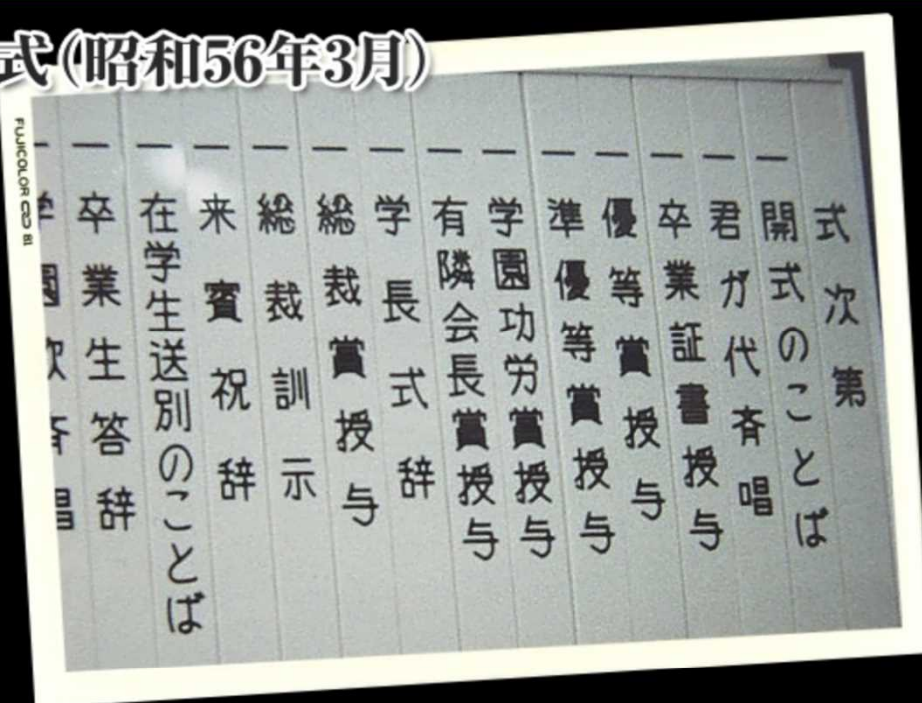 式(昭和56年3月)
FUJICOLOR 81
式次第
一 開式のことば
一 君ガ代斉唱
一 卒業証書授与
一 優等賞授与
一 準優等賞授与
一 学園功労賞授与
一 有隣会長賞授与
一 学長式辞
一 総裁賞授与
一 総裁訓示
一 来賓祝辞
一 在学生送別のことば
一 卒業生答辞
一 学園歌斉唱